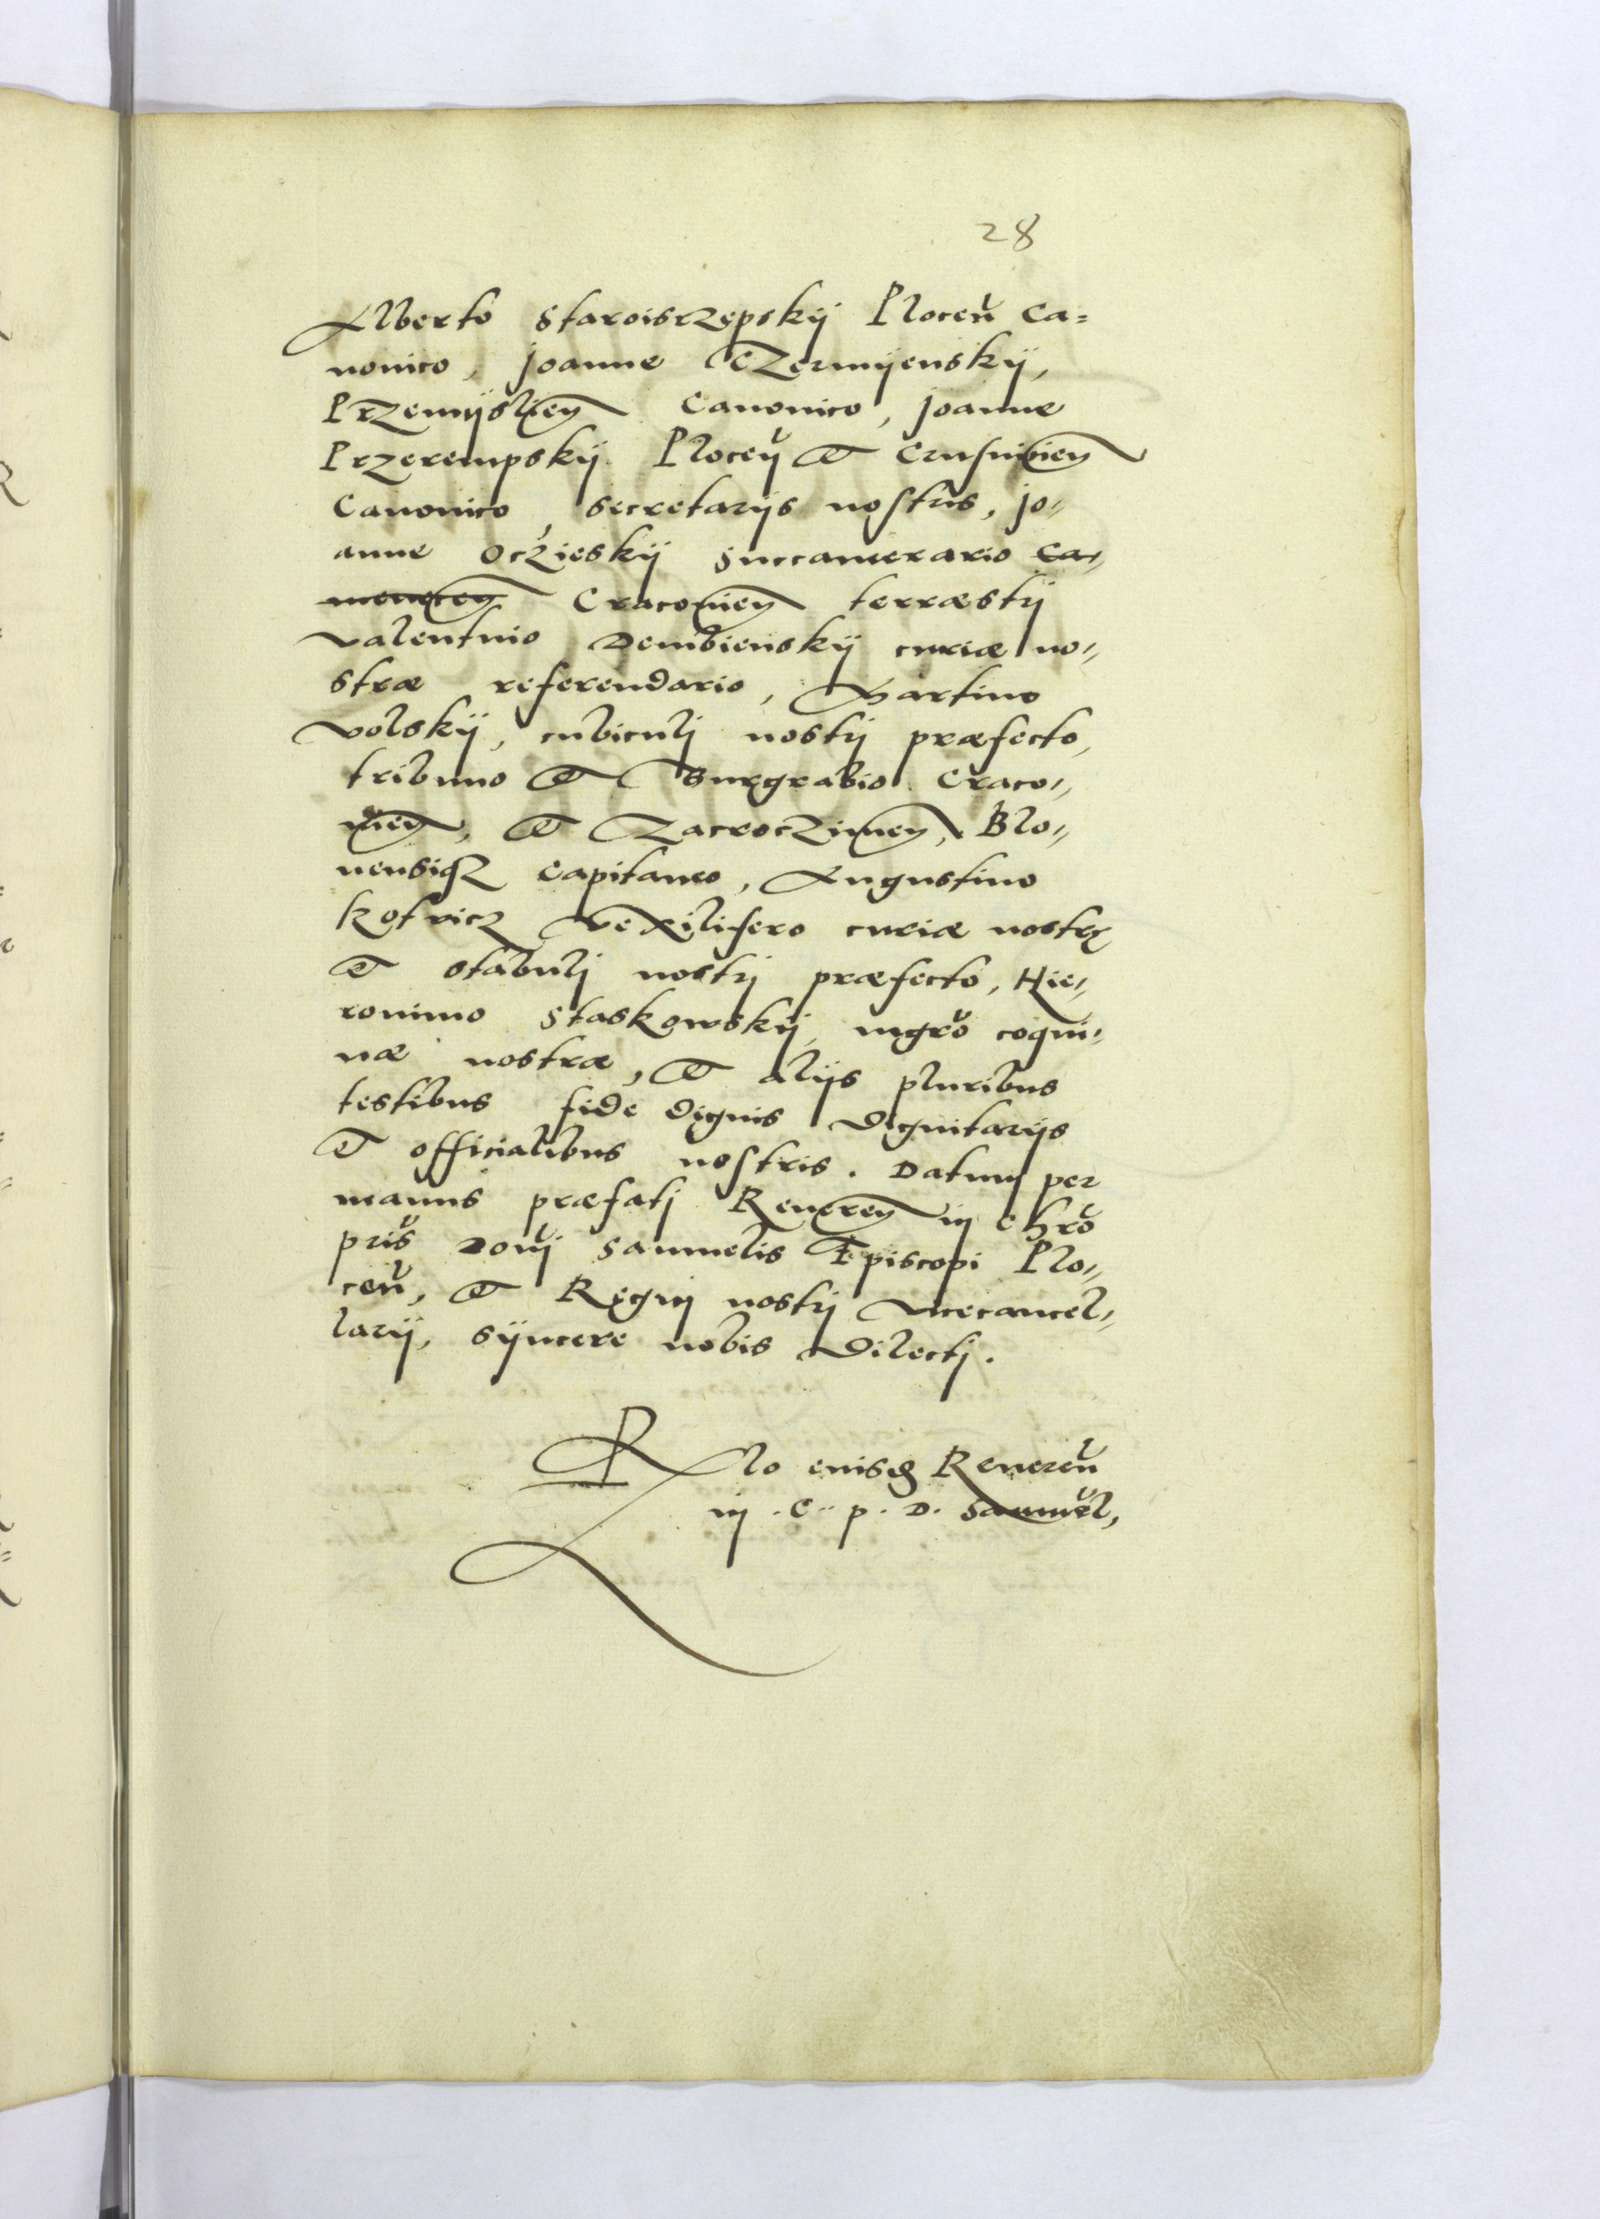 28
Alberto Staroisrzepskij Plocen̄ Ca=
nonico, Joanne Czermyenskij,
Przemysliens Canonico, Joanne
Przerempskij Plocen̄ et Crusvicien̄
Canonico, secretarijs nostris, Jo=
anne Oczieskij Succamerario Ca=
menecen̄ Cracovien̄ terræstrj
Valentino Dembienskij curiæ no=
stræ referendario, Martino
Volskij, cubiculj nostrj præfecto,
tribuno et Burgrabio Craco=
vien̄, et Zacroczimen̄, Blo=
nensiq3 Capitaneo, Augustino
Kotvicz Vexilifero curiæ nostrę
et stabulj nostrj præfecto, Hie=
ronimo Staskowskij, mgrō coqui=
næ nostræ, et alijs pluribus
testibus fide dignis dignitarijs
et officialibus nostris. Datum per
manus præfatj Reveren̄ in Chrō
pris̄ Domj̄ Samuelis Episcopi Plo=
cen̄, et Regnj nostrj Vicecancel=
larij, syncere nobis dilectj.
Rlo eiusdē Reveren̄
in . C .. p . D . Samuel,